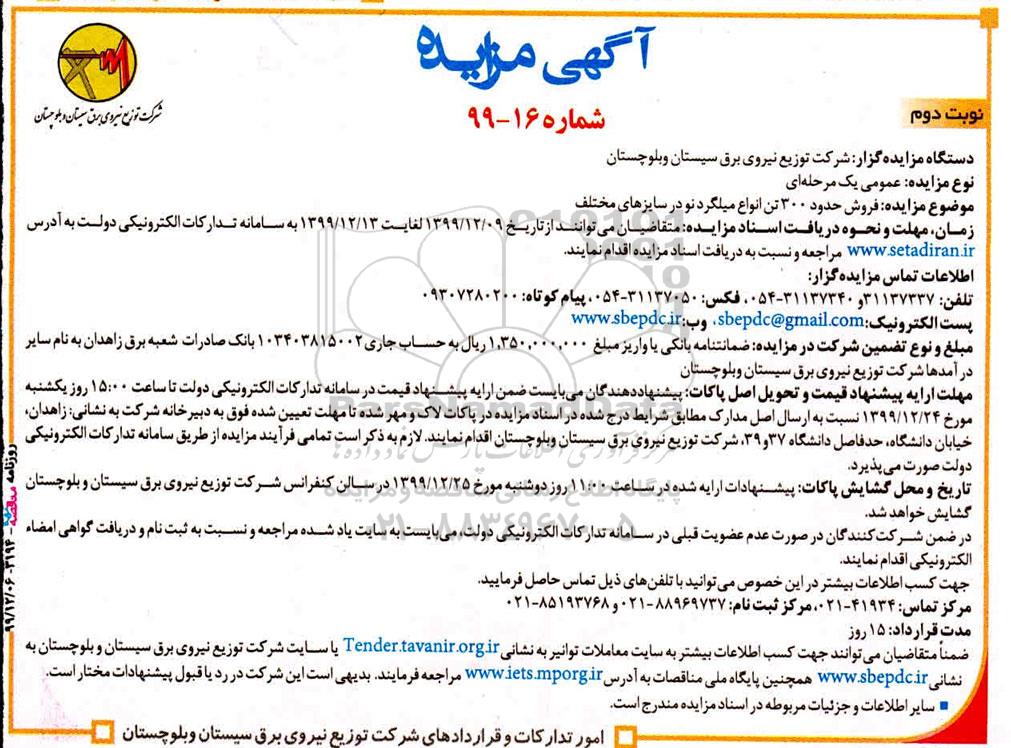 آگهی مزایده
شماره ۱۶-۹۹
نوبت دوم
شرکت توزیع نیروی برق سیستان و بلوچستان
دستگاه مزایده گزار: شرکت توزیع نیروی برق سیستان وبلوچستان
نوع مزایده: عمومی یک مرحله‌ای
موضوع مزایده: فروش حدود ۳۰۰ تن انواع میلگرد نو در سایزهای مختلف
زمان، مهلت و نحوه دریافت اسناد مزایده: متقاضیان می‌توانند از تاریخ ۱۳۹۹/۱۲/۰۹ لغایت ۱۳۹۹/۱۲/۱۳ به سامانه تدارکات الکترونیکی دولت به آدرس
www.setadiran.ir مراجعه و نسبت به دریافت اسناد مزایده اقدام نمایند.
اطلاعات تماس مزایده گزار:
تلفن: ۳۱۱۳۷۳۳۷ و ۳۱۱۳۷۳۴۰-۰۵۴، فکس: ۳۱۱۳۷۰۵۰-۰۵۴، پیام کوتاه: ۰۹۳۰۷۲۸۰۲۰۰
پست الکترونیک: sbepdc@gmail.com، وب: www.sbepdc.ir
مبلغ و نوع تضمین شرکت در مزایده: ضمانتنامه بانکی یا واریز مبلغ ۱,۳۵۰,۰۰۰,۰۰۰ ریال به حساب جاری ۱۰۳۴۰۳۸۱۵۰۰۲ بانک صادرات شعبه برق زاهدان به نام سایر
درآمدها شرکت توزیع نیروی برق سیستان وبلوچستان
مهلت ارایه پیشنهاد قیمت و تحویل اصل پاکات: پیشنهاددهندگان می‌بایست ضمن ارایه پیشنهاد قیمت در سامانه تدارکات الکترونیکی دولت تا ساعت ۱۵:۰۰ روز یکشنبه
مورخ ۱۳۹۹/۱۲/۲۴ نسبت به ارسال اصل مدارک مطابق شرایط درج شده در اسناد مزایده در پاکات لاک و مهر شده تا مهلت تعیین شده فوق به دبیرخانه شرکت به نشانی: زاهدان،
خیابان دانشگاه، حدفاصل دانشگاه ۳۷ و ۳۹، شرکت توزیع نیروی برق سیستان وبلوچستان اقدام نمایند. لازم به ذکر است تمامی فرآیند مزایده از طریق سامانه تدارکات الکترونیکی
دولت صورت می‌پذیرد.
تاریخ و محل گشایش پاکات: پیشنهادات ارایه شده در ساعت ۱۱:۰۰ روز دوشنبه مورخ ۱۳۹۹/۱۲/۲۵ در سالن کنفرانس شرکت توزیع نیروی برق سیستان و بلوچستان
گشایش خواهد شد.
در ضمن شرکت‌کنندگان در صورت عدم عضویت قبلی در سامانه تدارکات الکترونیکی دولت، می‌بایست به سایت یاد شده مراجعه و نسبت به ثبت نام و دریافت گواهی امضاء
الکترونیکی اقدام نمایند.
جهت کسب اطلاعات بیشتر در این خصوص می‌توانید با تلفن‌های ذیل تماس حاصل فرمایید.
مرکز تماس: ۴۱۹۳۴-۰۲۱، مرکز ثبت نام: ۸۸۹۶۹۷۳۷-۰۲۱ و ۸۵۱۹۳۷۶۸-۰۲۱
مدت قرارداد: ۱۵ روز
ضمناً متقاضیان می‌توانند جهت کسب اطلاعات بیشتر به سایت معاملات توانیر به نشانی Tender.tavanir.org.ir یا سایت شرکت توزیع نیروی برق سیستان و بلوچستان به
نشانی www.sbepdc.ir همچنین پایگاه ملی مناقصات به آدرس www.iets.mporg.ir مراجعه فرمایند. بدیهی است این شرکت در رد یا قبول پیشنهادات مختار است.
■ سایر اطلاعات و جزئیات مربوطه در اسناد مزایده مندرج است.
امور تدارکات و قراردادهای شرکت توزیع نیروی برق سیستان وبلوچستان
روزنامه مناقصه مزایده - ۳۱۹۴ - ۹۹/۱۲/۰۶
ParsNamadData
پایگاه اطلاع رسانی مناقصه و مزایده
۰۲۱-۸۸۳۴۹۶۷۰-۵